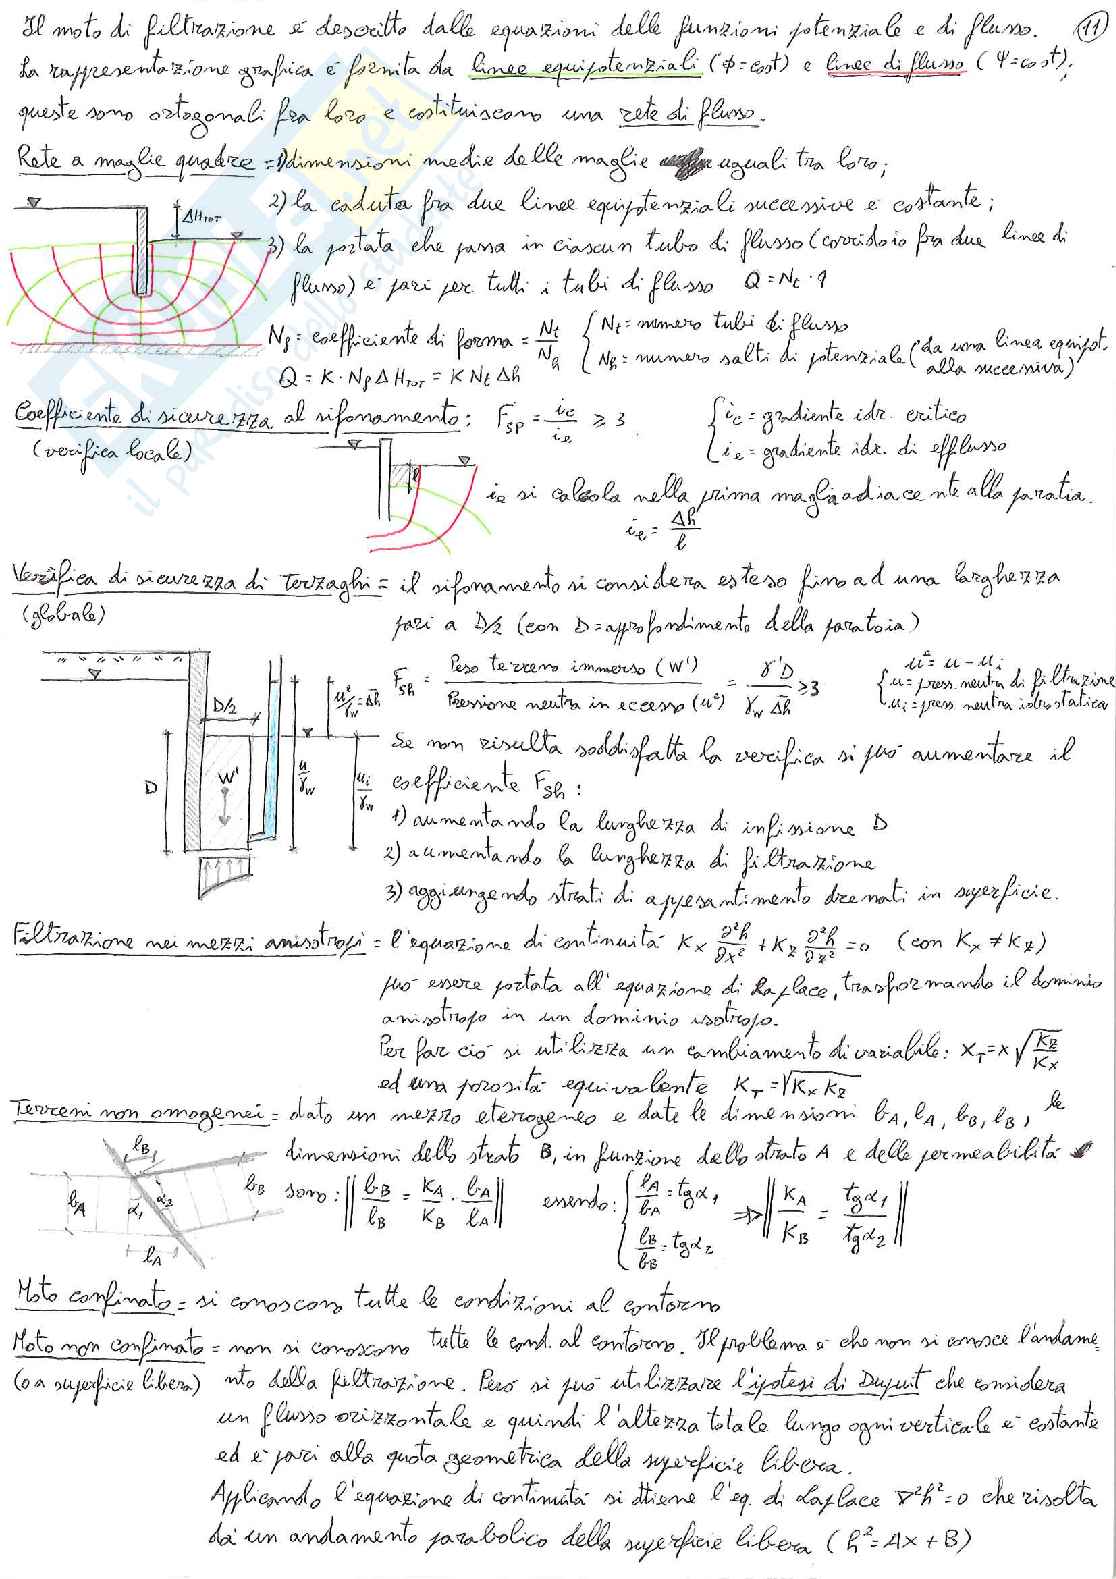 Il moto di filtrazione è descritto dalle equazioni delle funzioni potenziale e di flusso. 11
La rappresentazione grafica è fornita da linee equipotenziali (Φ=cost) e linee di flusso (Ψ=cost);
queste sono ortogonali fra loro e costituiscono una rete di flusso.
Rete a maglie quadre = 1) dimensioni medie delle maglie uguali tra loro;
2) la caduta fra due linee equipotenziali successive è costante;
ΔH_TOT
3) la portata che passa in ciascun tubo di flusso (corridoio fra due linee di
flusso) è pari per tutti i tubi di flusso Q = Nt · q
Nf = coefficiente di forma = Nt/Nh { Nt = numero tubi di flusso
Nh = numero salti di potenziale (da una linea equipot. alla successiva)
Q = K · Nf ΔH_TOT = K Nt Δh
Coefficiente di sicurezza al sifonamento: F_SP = ic/ie ≥ 3 { ic = gradiente idr. critico
(verifica locale) ie = gradiente idr. di efflusso
ie si calcola nella prima maglia adiacente alla paratia.
ie = Δh/l
Verifica di sicurezza di Terzaghi = il sifonamento si considera esteso fino ad una larghezza
(globale) pari a D/2 (con D = approfondimento della paratoia)
F_Sh = Peso terreno immerso (W') / Pressione neutra in eccesso (u²) = γ'D / γw Δh̄ ≥ 3
u² = u - ui
{ u = press. neutra di filtrazione
ui = press. neutra idrostatica
D/2 u²/γw = Δh̄
D W' u/γw ui/γw
Se non risulta soddisfatta la verifica si può aumentare il
coefficiente F_Sh:
1) aumentando la lunghezza di infissione D
2) aumentando la lunghezza di filtrazione
3) aggiungendo strati di appesantimento drenati in superficie.
Filtrazione nei mezzi anisotropi = l'equazione di continuità Kx ∂²h/∂x² + Kz ∂²h/∂z² = 0 (con Kx ≠ Kz)
può essere portata all'equazione di Laplace, trasformando il dominio
anisotropo in un dominio isotropo.
Per far ciò si utilizza un cambiamento di variabile: X_T = x √(Kz/Kx)
ed una porosità equivalente K_T = √(Kx Kz)
Terreni non omogenei = dato un mezzo eterogeneo e date le dimensioni bA, lA, bB, lB, le
dimensioni dello strato B, in funzione dello strato A e delle permeabilità
sono: || bB/lB = KA/KB · bA/lA || essendo: { lA/bA = tgα1
lB/bB = tgα2
⇒ || KA/KB = tgα1/tgα2 ||
lB bB bA α1 α2 lA
Moto confinato = si conoscono tutte le condizioni al contorno
Moto non confinato = non si conoscono tutte le cond. al contorno. Il problema è che non si conosce l'andame-
(o a superficie libera) nto della filtrazione. Però si può utilizzare l'ipotesi di Dupuit che considera
un flusso orizzontale e quindi l'altezza totale lungo ogni verticale è costante
ed è pari alla quota geometrica della superficie libera.
Applicando l'equazione di continuità si ottiene l'eq. di Laplace ∇²h²=0 che risolta
dà un andamento parabolico della superficie libera (h²=Ax+B)